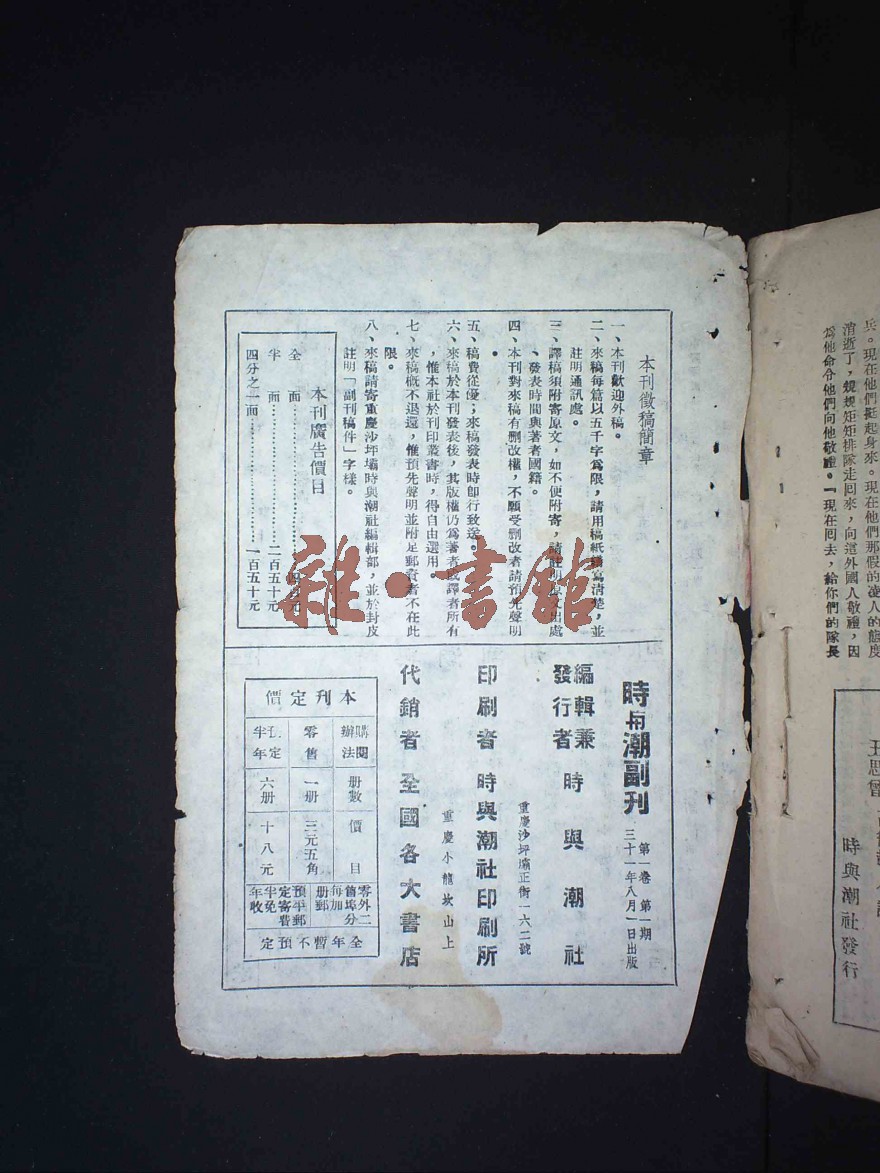 兵。現在他們挺起身來。現在他們那假的凌人的態度
消逝了，規規矩矩排隊走回來，向這外國人敬禮，因
爲他命令他們向他敬禮。「現在回去，給你們的隊長
時與潮社發行
本刊徵稿簡章
一、本刊歡迎外稿。
二、來稿每篇以五千字爲限，請用稿紙繕寫清楚，並
註明通訊處。
三、譯稿須附寄原文，如不便附寄，請註明原文出處
、發表時間與著者國籍。
四、本刊對來稿有删改權，不願受删改者請預先聲明
。
五、稿費從優；來稿發表時卽行致送。
六、來稿於本刊發表後，其版權仍爲著者或譯者所有
，惟本社於刊印叢書時，得自由選用。
七、來稿概不退還，惟預先聲明並附足郵費者不在此
限。
八、來稿請寄重慶沙坪壩時與潮社編輯部，並於封皮
註明「副刊稿件」字樣。
本刊廣告價目
全面……………………四百元
半面……………………二百五十元
四分之一面……………………一百五十元
雜·書館
時與潮副刊
第一卷 第一期
三十一年八月一日出版
編輯兼
發行者 時與潮社
重慶沙坪壩正街一六二號
印刷者 時與潮社印刷所
重慶小龍坎山上
代銷者 全國各大書店
本刊定價
購閱辦法 册數 價目
零售 一册 三元五角
預定半年 六册 十八元
零售每册
外埠加郵
二分
預定半年
平寄郵費
免收
全年暫不預定